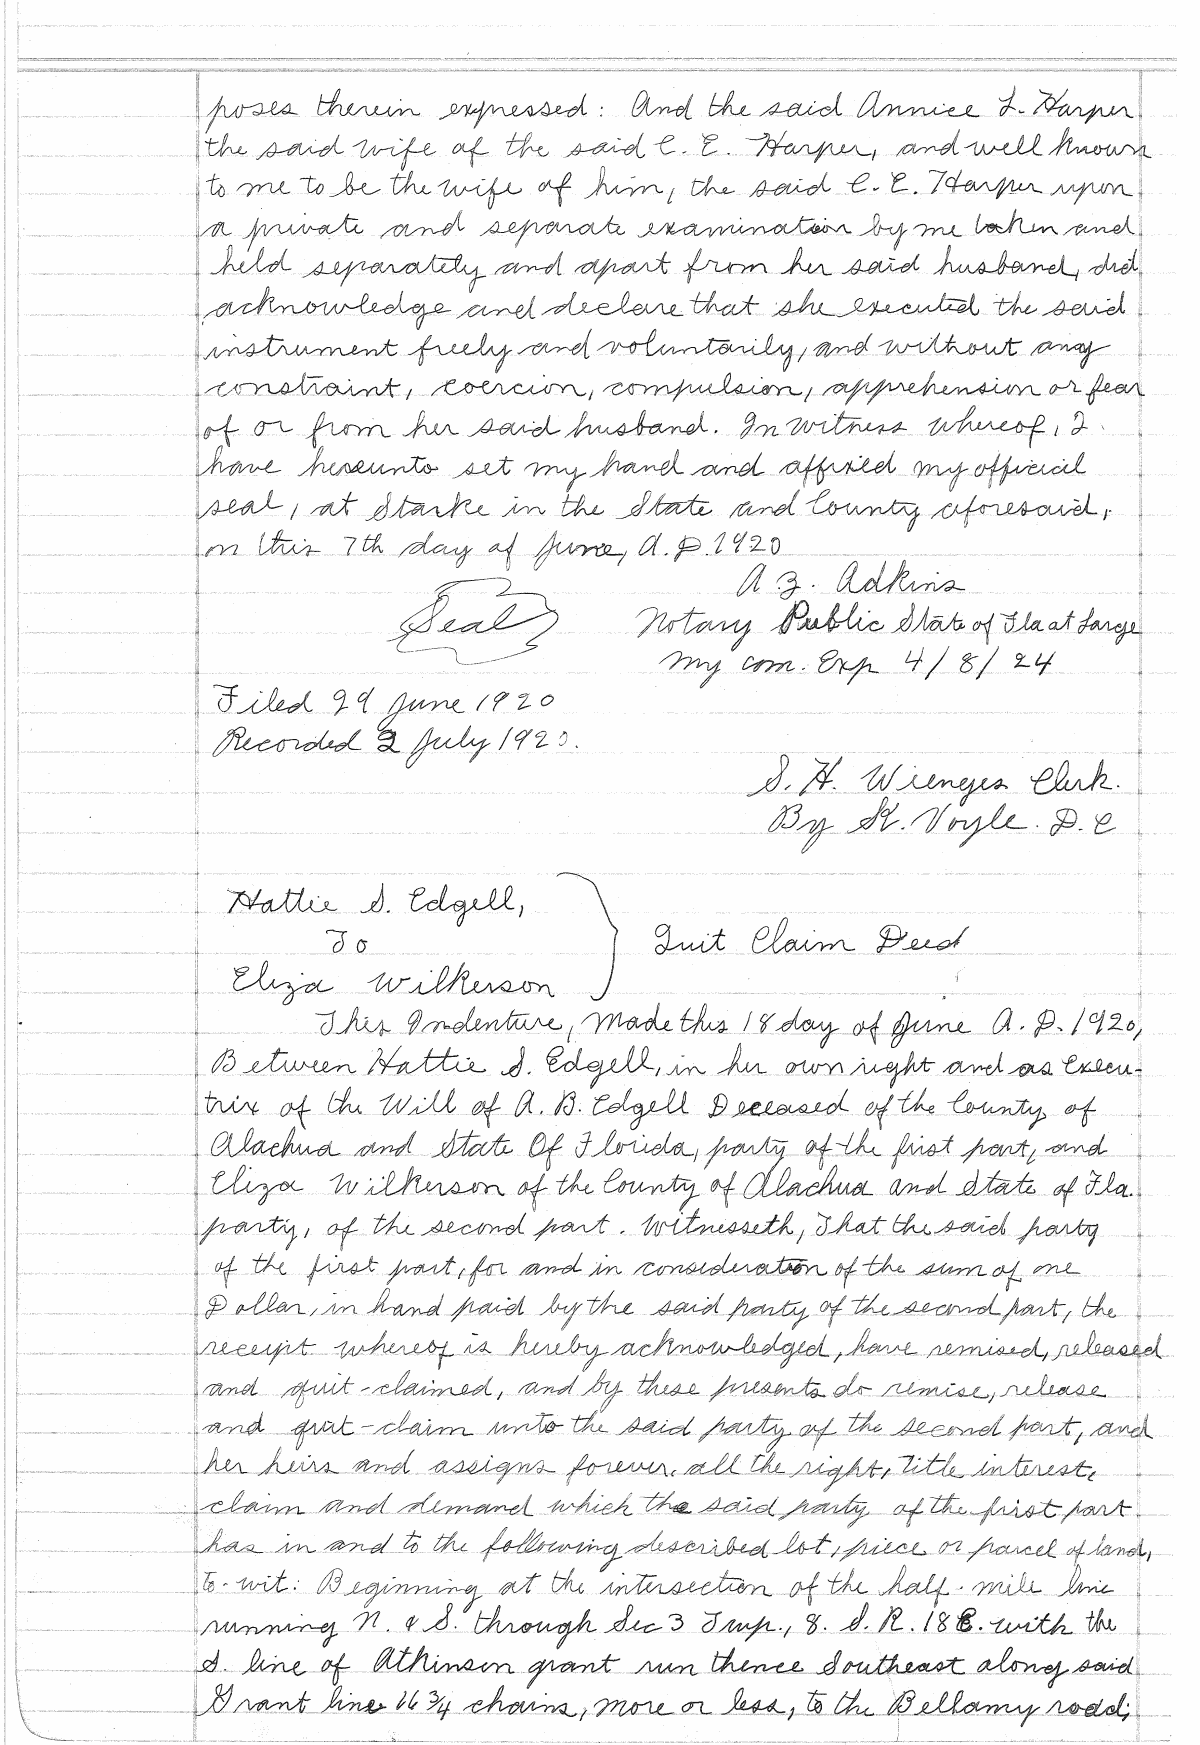 poses therein expressed: And the said Annice L. Harper
the said wife of the said C. E. Harper, and well known
to me to be the wife of him, the said C. E. Harper upon
a private and separate examination by me taken and
held separately and apart from her said husband, did
acknowledge and declare that she executed the said
instrument freely and voluntarily, and without any
constraint, coercion, compulsion, apprehension or fear
of or from her said husband. In witness whereof, I
have hereunto set my hand and affixed my official
seal, at Starke in the State and County aforesaid,
on this 7th day of June, A.D. 1920
A. Z. Adkins
Seal
Notary Public State of Fla at Large
My com. Exp 4/8/24
Filed 29 June 1920
Recorded 2 July 1920.
S. H. Wienges Clerk.
By K. Voyle. D.C
Hattie S. Edgell,
To
Quit Claim Deed
Eliza Wilkerson
This Indenture, Made this 18 day of June A.D. 1920,
Between Hattie S. Edgell, in her own right and as Execu-
trix of the Will of A. B. Edgell Deceased of the County of
Alachua and State Of Florida, party of the first part, and
Eliza Wilkerson of the County of Alachua and State of Fla.
party, of the second part. Witnesseth, That the said party
of the first part, for and in consideration of the sum of one
Dollar, in hand paid by the said party of the second part, the
receipt whereof is hereby acknowledged, have remised, released
and quit-claimed, and by these presents do remise, release
and quit-claim unto the said party of the second part, and
her heirs and assigns forever, all the right, Title interest,
claim and demand which the said party of the first part
has in and to the following described lot, piece or parcel of land,
to-wit: Beginning at the intersection of the half-mile line
running N. & S. through Sec 3 Twp., 8. S. R. 18 E. with the
S. line of Atkinson grant run thence Southeast along said
Grant line 16 3/4 chains, more or less, to the Bellamy road;